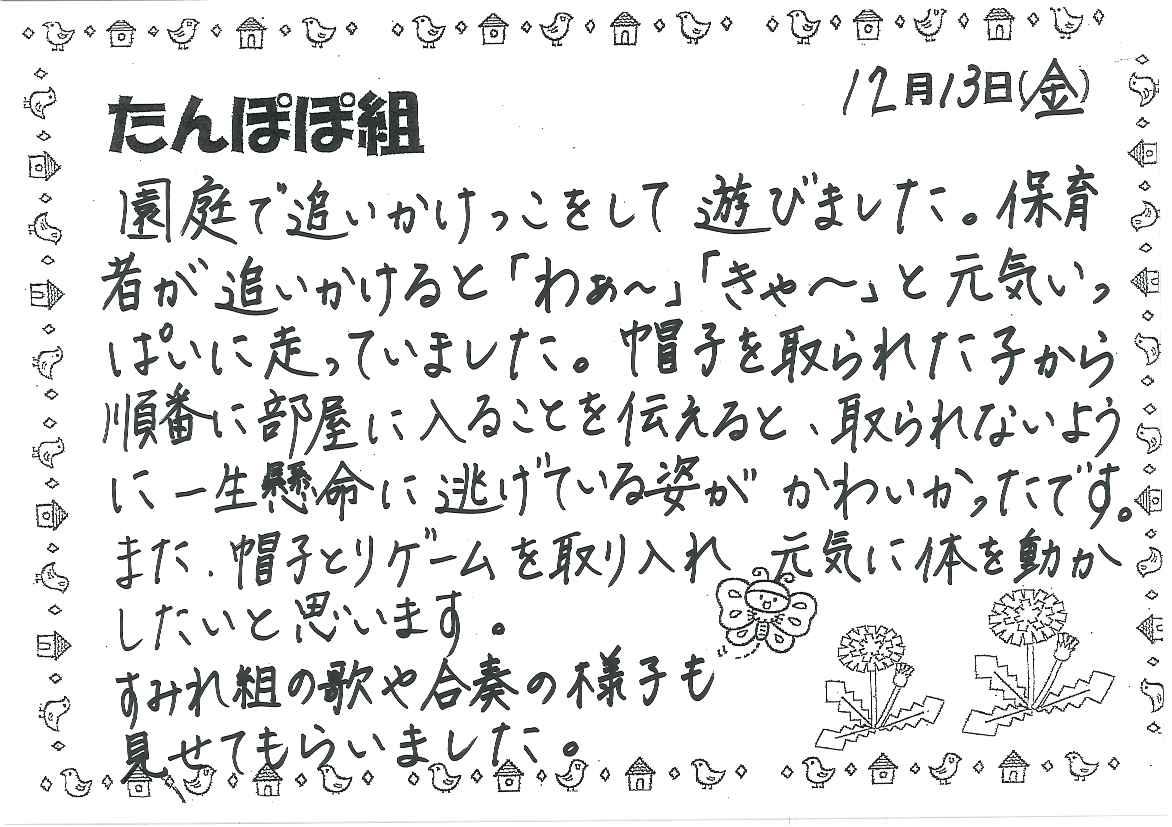 12月13日(金)
たんぽぽ組
園庭で追いかけっこをして遊びました。保育
者が追いかけると「わぁ〜」「きゃ〜」と元気いっ
ぱいに走っていました。帽子を取られた子から
順番に部屋に入ることを伝えると、取られないよう
に一生懸命に逃げている姿がかわいかったです。
また、帽子とりゲームを取り入れ 元気に体を動か
したいと思います。
すみれ組の歌や合奏の様子も
見せてもらいました。